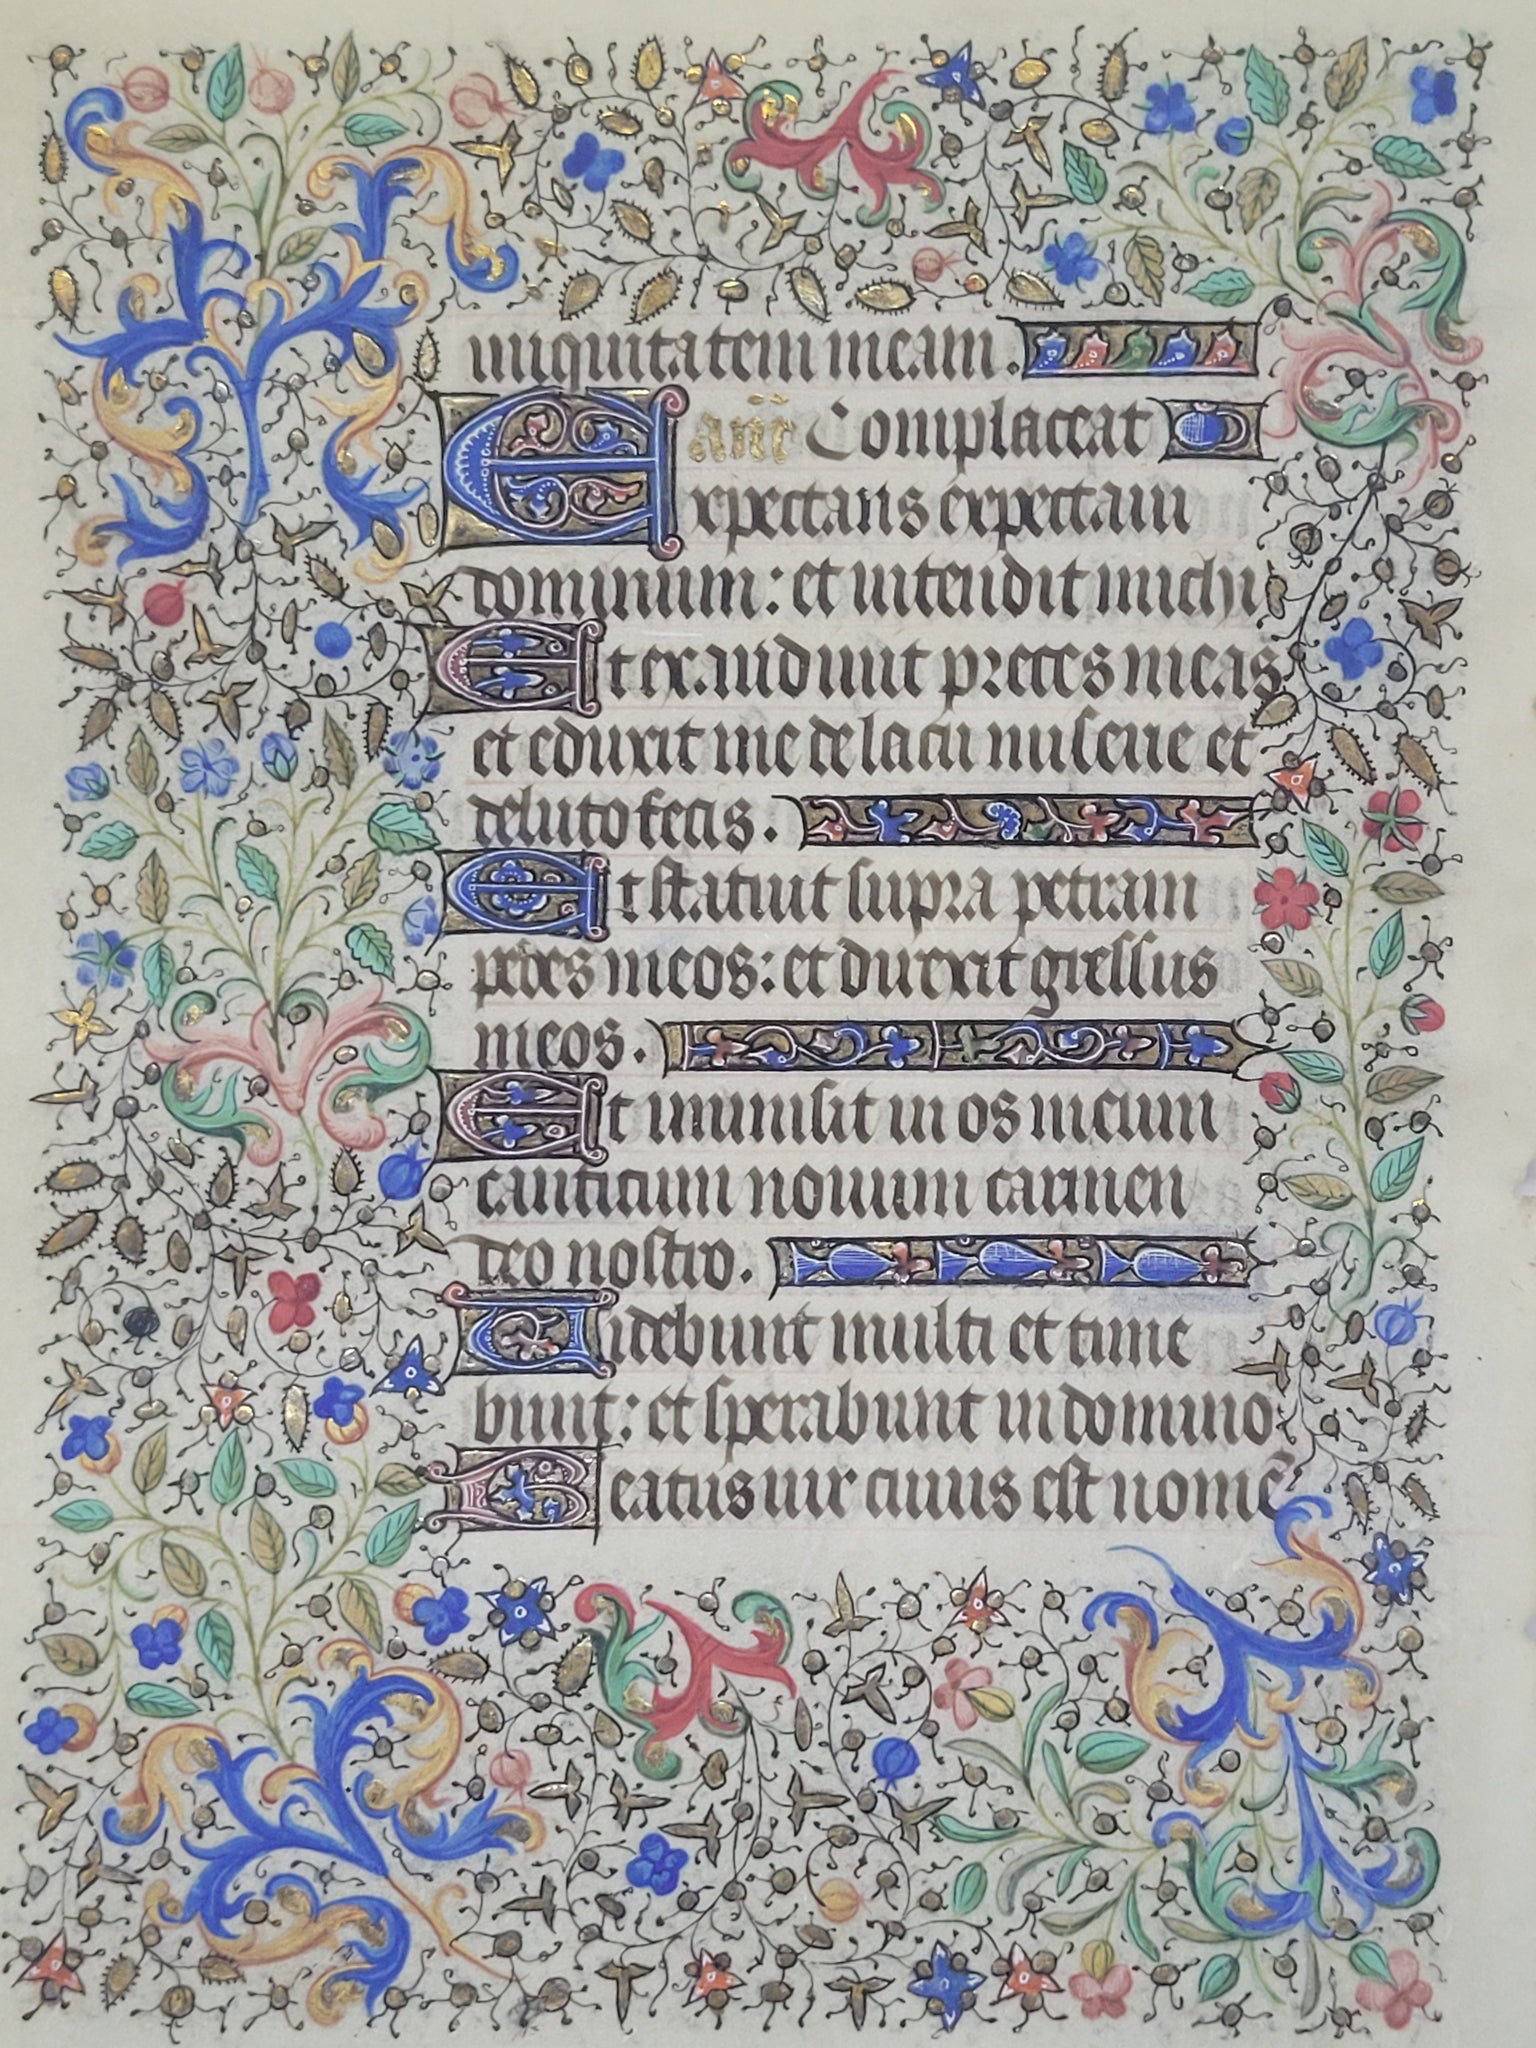 iniquitatem meam.
añt Complaceat
Expectans expectaui
dominum: et intendit michi
Et exaudiuit preces meas
et eduxit me de lacu miserie et
de luto fecis.
Et statuit supra petram
pedes meos: et direxit gressus
meos.
Et inmisit in os meum
canticum nouum carmen
deo nostro.
Uidebunt multi et time
bunt: et sperabunt in domino
Beatus uir cuius est nomē